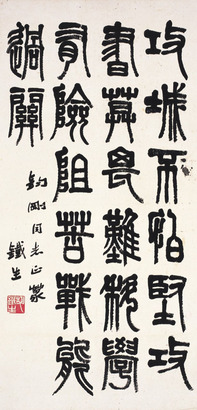 攻城不怕堅攻
書莫畏難科學
有險阻苦戰能
過關
剛同志正篆
鐵生